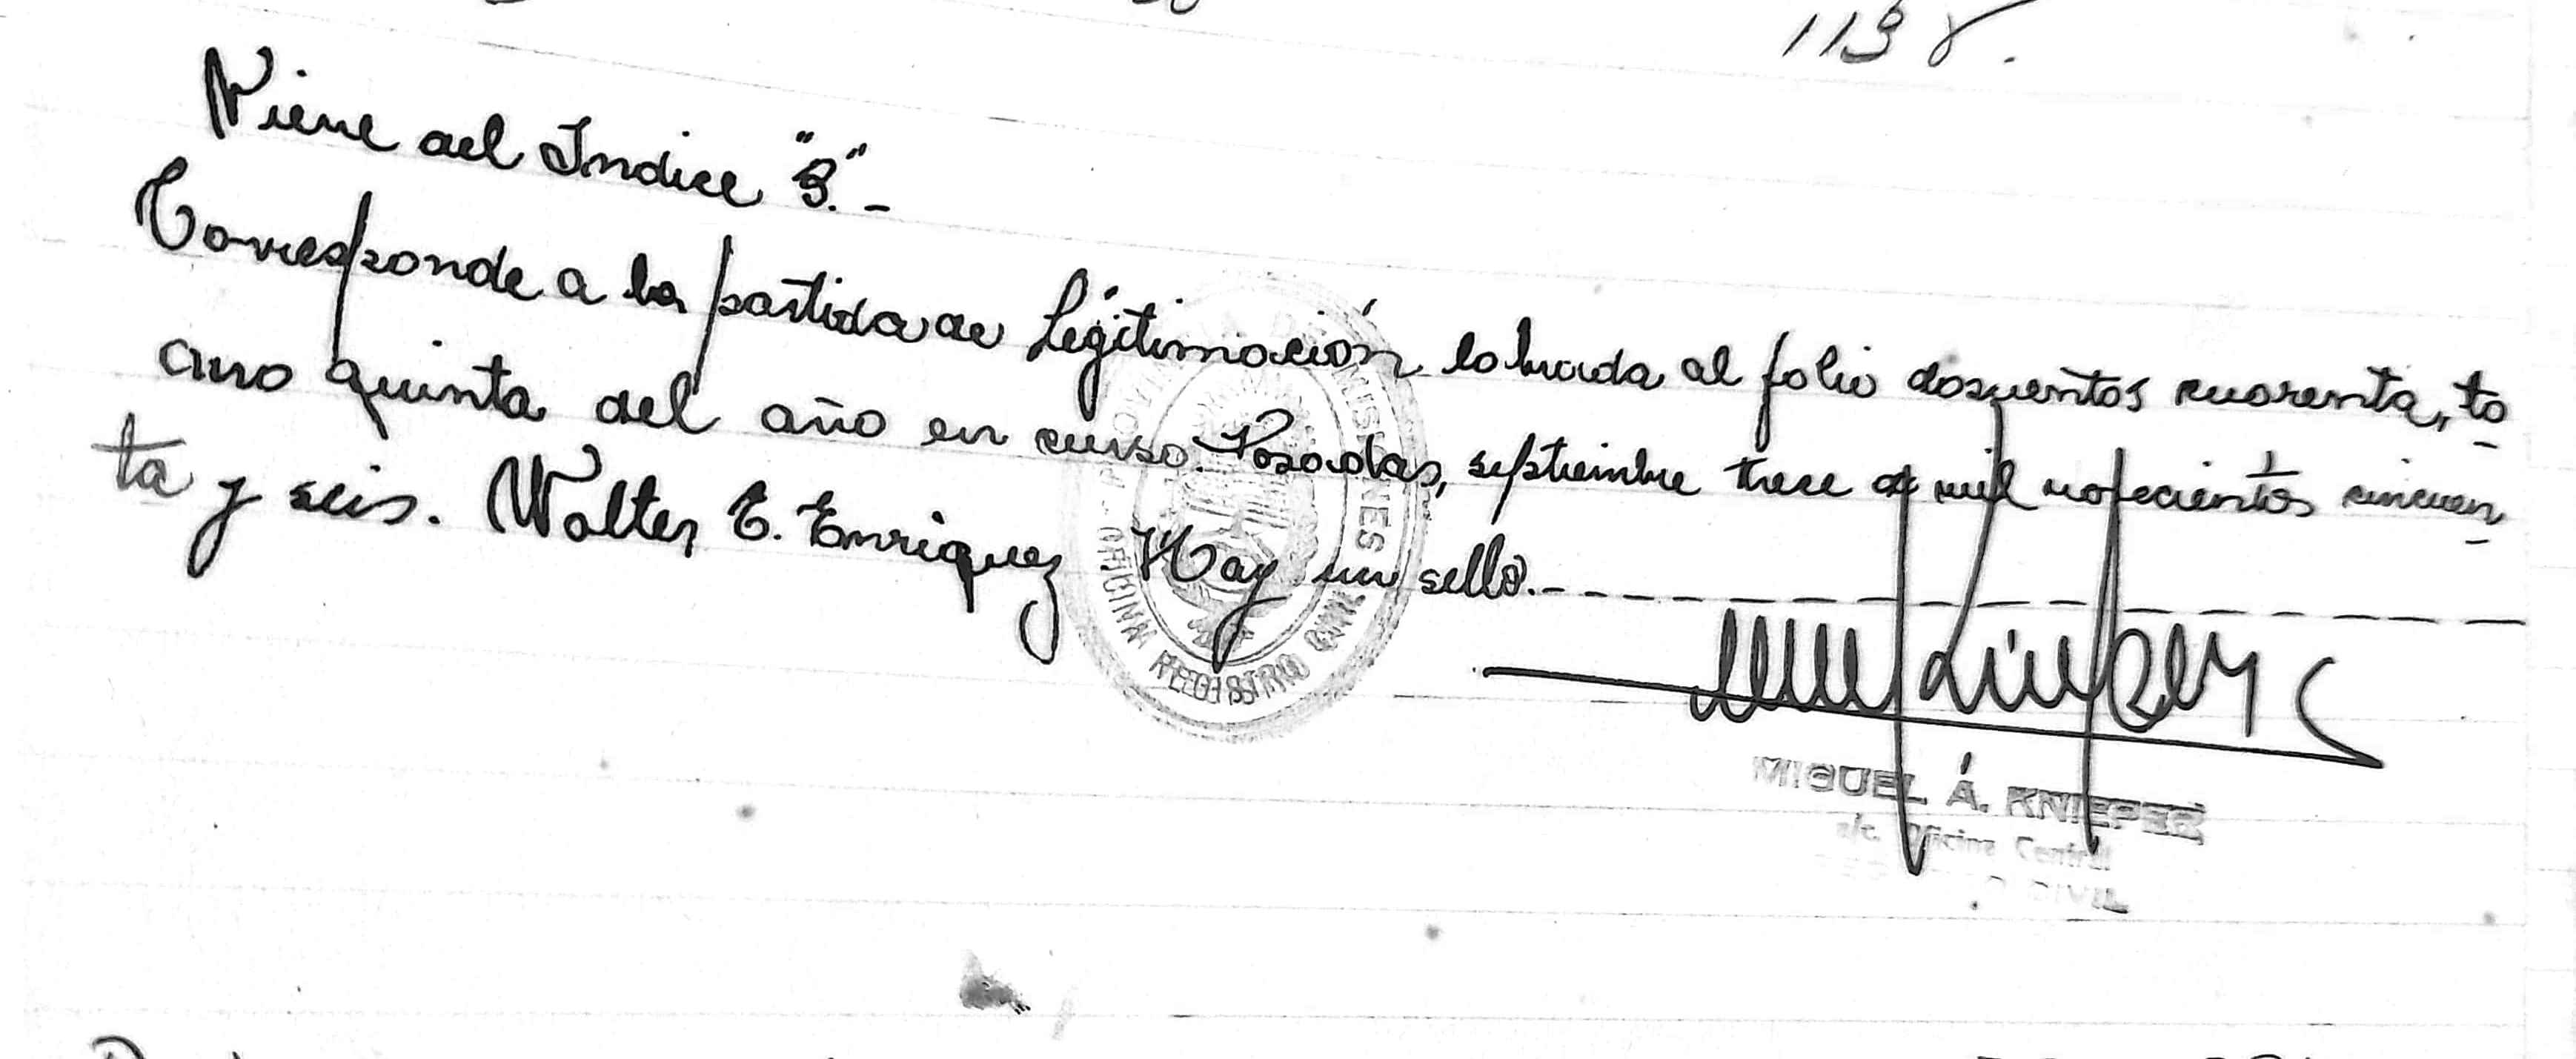 1138.
Viene del Indice "B".-
Corresponde a la partida de Légitimación labrada al folio doscientos cuarenta, to
mo quinta del año en curso. Posadas, septiembre trece de mil novecientos cincuen
ta y seis. Walter E. Enriquez Hay un sello.-
MISIONES
OFICINA REGISTRO CIVIL
MIGUEL Á. KNIEPER
Oficina Central
CIVIL